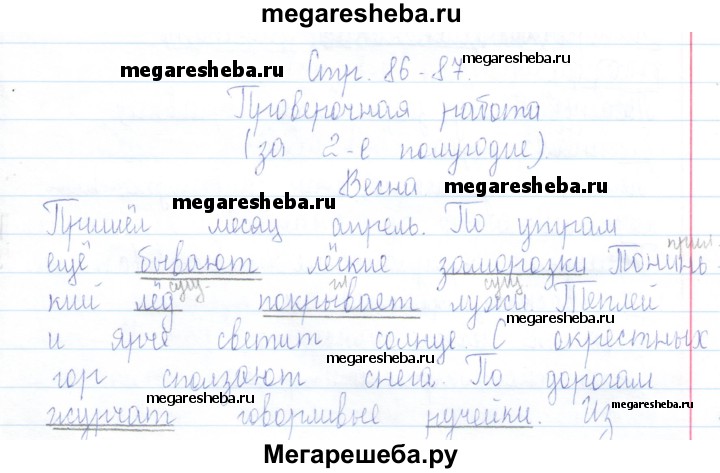 megaresheba.ru
Стр. 86-87.
megaresheba.ru
megaresheba.ru
Проверочная работа
(за 2-е полугодие).
megaresheba.ru
Весна
megaresheba.ru
megaresheba.ru
Пришёл месяц апрель. По утрам
прил.
ещё бывают лёгкие заморозки Тонинь-
сущ. гл. сущ.
кий лёд покрывает лужи. Теплей
megaresheba.ru
и ярче светит солнце. С окрестных
megaresheba.ru
гор сползают снега. По дорогам
megaresheba.ru
журчат говорливые ручейки. Из
megaresheba.ru
Мегарешеба.ру